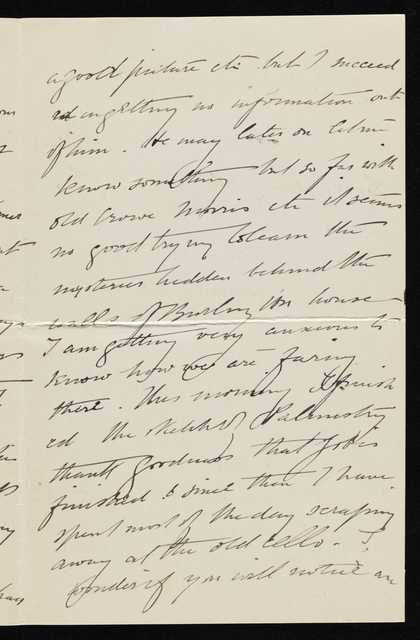 a good picture etc. but I succeed
ed in getting no information out
of him. He may later on let me
know something but so far with
old Crowe Morris etc it seems
no good trying to learn the
mysteries hidden behind the
walls of Burlington house
I am getting very anxious to
know how we are faring
there. This morning I finish
ed the sketch of Palmistry
thank goodness that job is
finished & since then I have
spent most of the day scraping
away at the old cello. I
wonder if you will notice an